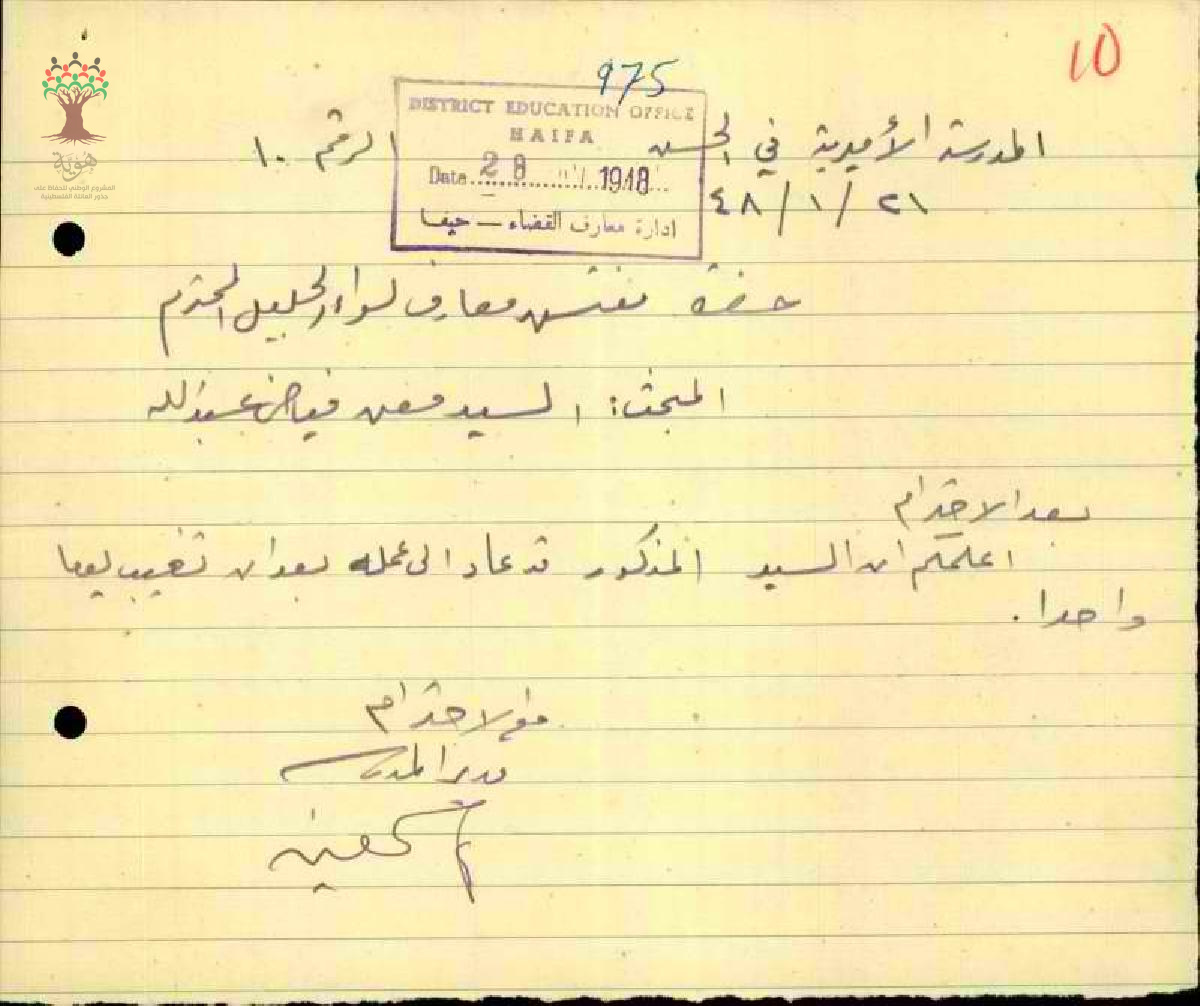 10
975
DISTRICT EDUCATION OFFICE
HAIFA
Date 28 1948
ادارة معارف القضاء — حيفا
المدرسة الأميرية في الرقم ١٠
٢١ / ١ / ٤٨
حضرة مفتش معارف لواء الجليل المحترم
المبحث: السيد معن فياض عبدالله
بعد الاحترام
اعلمكم ان السيد المذكور قد عاد الى عمله بعد ان تغيب يوما
واحدا.
مع الاحترام
مدير المدرسة
هوية
المشروع الوطني للحفاظ على
جذور العائلة الفلسطينية